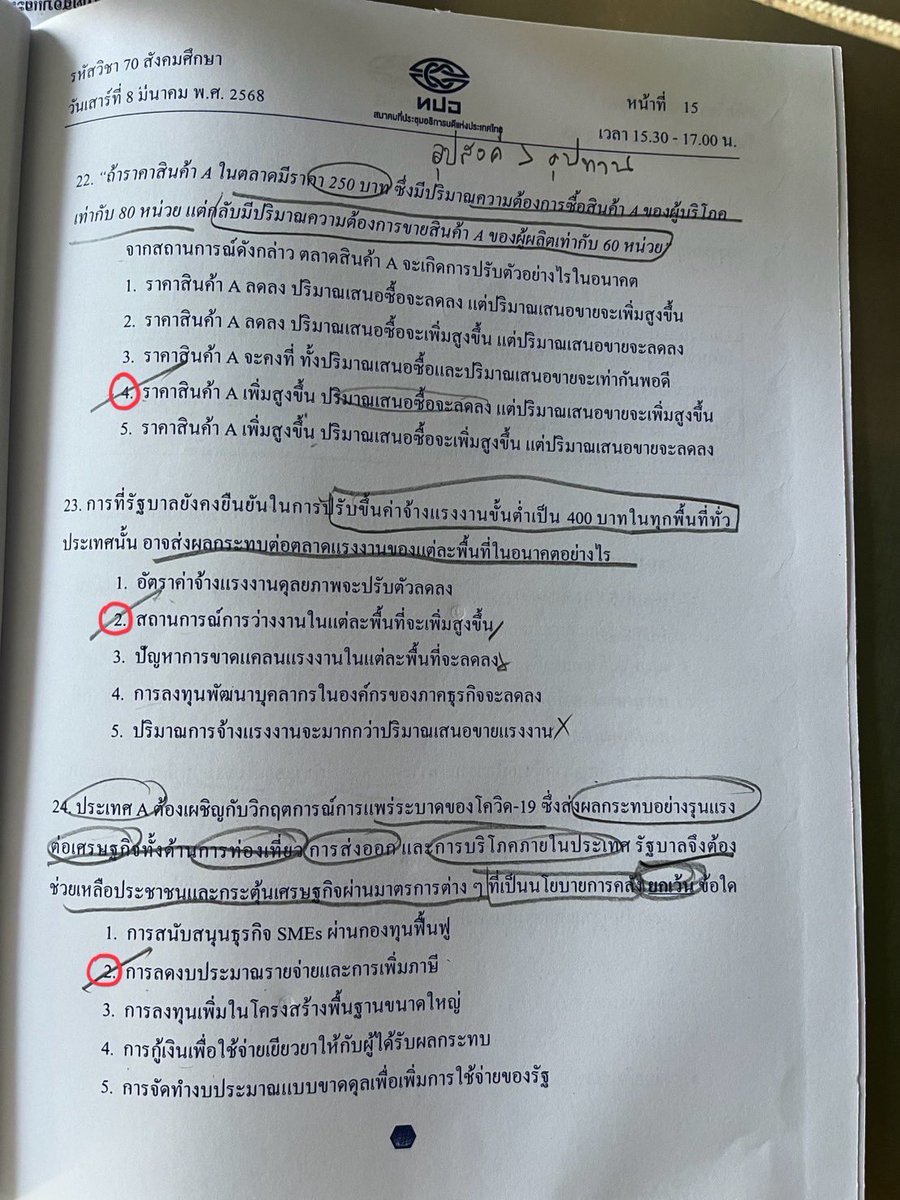 รหัสวิชา 70 สังคมศึกษา
วันเสาร์ที่ 8 มีนาคม พ.ศ. 2568
ทปอ
สมาคมที่ประชุมอธิการบดีแห่งประเทศไทย
หน้าที่ 15
เวลา 15.30 - 17.00 น.
อุปสงค์ > อุปทาน
22. "ถ้าราคาสินค้า A ในตลาดมีราคา 250 บาท ซึ่งมีปริมาณความต้องการซื้อสินค้า A ของผู้บริโภค
เท่ากับ 80 หน่วย แต่กลับมีปริมาณความต้องการขายสินค้า A ของผู้ผลิตเท่ากับ 60 หน่วย"
จากสถานการณ์ดังกล่าว ตลาดสินค้า A จะเกิดการปรับตัวอย่างไรในอนาคต
1. ราคาสินค้า A ลดลง ปริมาณเสนอซื้อจะลดลง แต่ปริมาณเสนอขายจะเพิ่มสูงขึ้น
2. ราคาสินค้า A ลดลง ปริมาณเสนอซื้อจะเพิ่มสูงขึ้น แต่ปริมาณเสนอขายจะลดลง
3. ราคาสินค้า A จะคงที่ ทั้งปริมาณเสนอซื้อและปริมาณเสนอขายจะเท่ากันพอดี
4. ราคาสินค้า A เพิ่มสูงขึ้น ปริมาณเสนอซื้อจะลดลง แต่ปริมาณเสนอขายจะเพิ่มสูงขึ้น
5. ราคาสินค้า A เพิ่มสูงขึ้น ปริมาณเสนอซื้อจะเพิ่มสูงขึ้น แต่ปริมาณเสนอขายจะลดลง
23. การที่รัฐบาลยังคงยืนยันในการปรับขึ้นค่าจ้างแรงงานขั้นต่ำเป็น 400 บาทในทุกพื้นที่ทั่ว
ประเทศนั้น อาจส่งผลกระทบต่อตลาดแรงงานของแต่ละพื้นที่ในอนาคตอย่างไร
1. อัตราค่าจ้างแรงงานดุลยภาพจะปรับตัวลดลง
2. สถานการณ์การว่างงานในแต่ละพื้นที่จะเพิ่มสูงขึ้น
3. ปัญหาการขาดแคลนแรงงานในแต่ละพื้นที่จะลดลง
4. การลงทุนพัฒนาบุคลากรในองค์กรของภาคธุรกิจจะลดลง
5. ปริมาณการจ้างแรงงานจะมากกว่าปริมาณเสนอขายแรงงาน X
24. ประเทศ A ต้องเผชิญกับวิกฤตการณ์การแพร่ระบาดของโควิด-19 ซึ่งส่งผลกระทบอย่างรุนแรง
ต่อเศรษฐกิจทั้งด้านการท่องเที่ยว การส่งออก และการบริโภคภายในประเทศ รัฐบาลจึงต้อง
ช่วยเหลือประชาชนและกระตุ้นเศรษฐกิจผ่านมาตรการต่าง ๆ ที่เป็นนโยบายการคลัง ยกเว้น ข้อใด
1. การสนับสนุนธุรกิจ SMEs ผ่านกองทุนฟื้นฟู
2. การลดงบประมาณรายจ่ายและการเพิ่มภาษี
3. การลงทุนเพิ่มในโครงสร้างพื้นฐานขนาดใหญ่
4. การกู้เงินเพื่อใช้จ่ายเยียวยาให้กับผู้ได้รับผลกระทบ
5. การจัดทำงบประมาณแบบขาดดุลเพื่อเพิ่มการใช้จ่ายของรัฐ